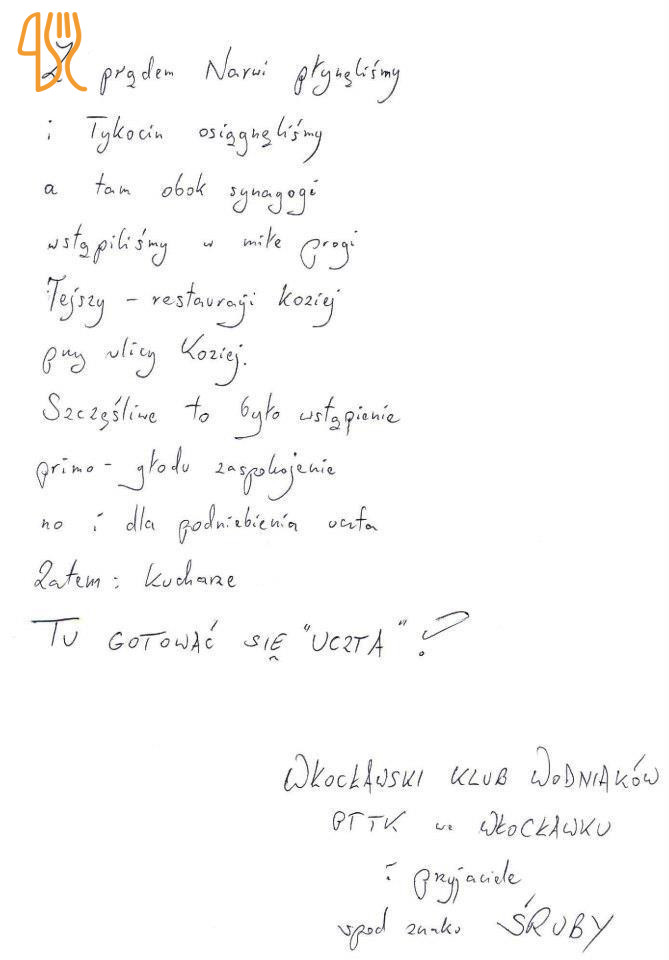 Z prądem Narwi płynęliśmy
i Tykocin osiągnęliśmy
a tam obok synagogi
wstąpiliśmy w miłe progi
Tejszy - restauracji koziej
przy ulicy Koziej.
Szczęśliwe to było wstąpienie
primo - głodu zaspokojenie
no i dla podniebienia uczta
Zatem: Kucharze
TU GOTOWAĆ SIĘ "UCZTA" !
WŁOCŁAWSKI KLUB WODNIAKÓW
PTTK we WŁOCŁAWKU
i przyjaciele
spod znaku ŚRUBY